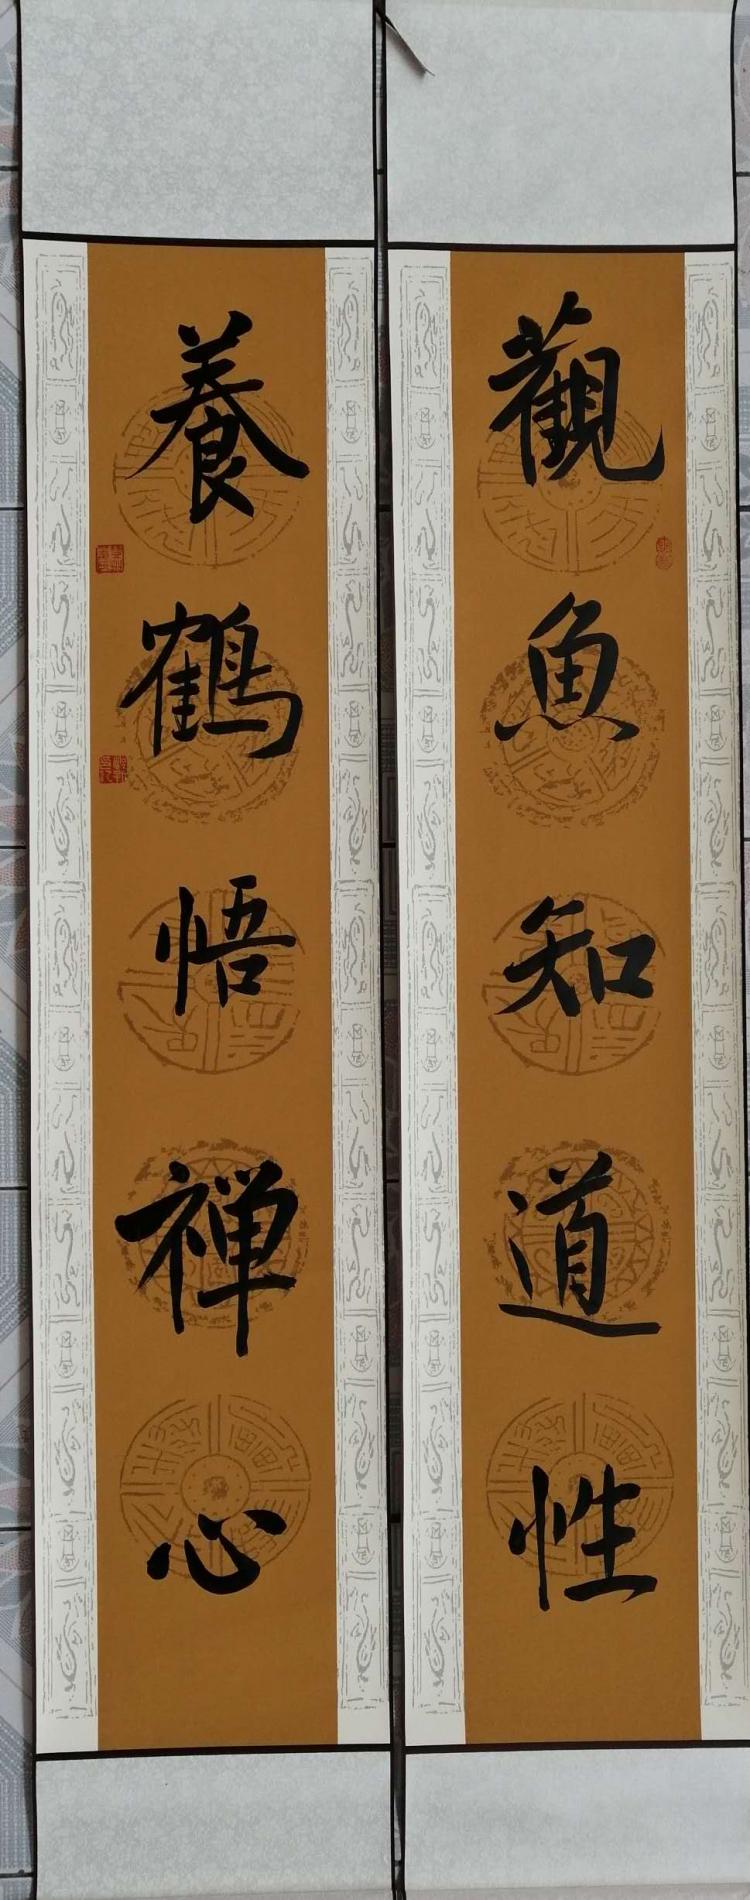 觀魚知道性
養鶴悟禅心